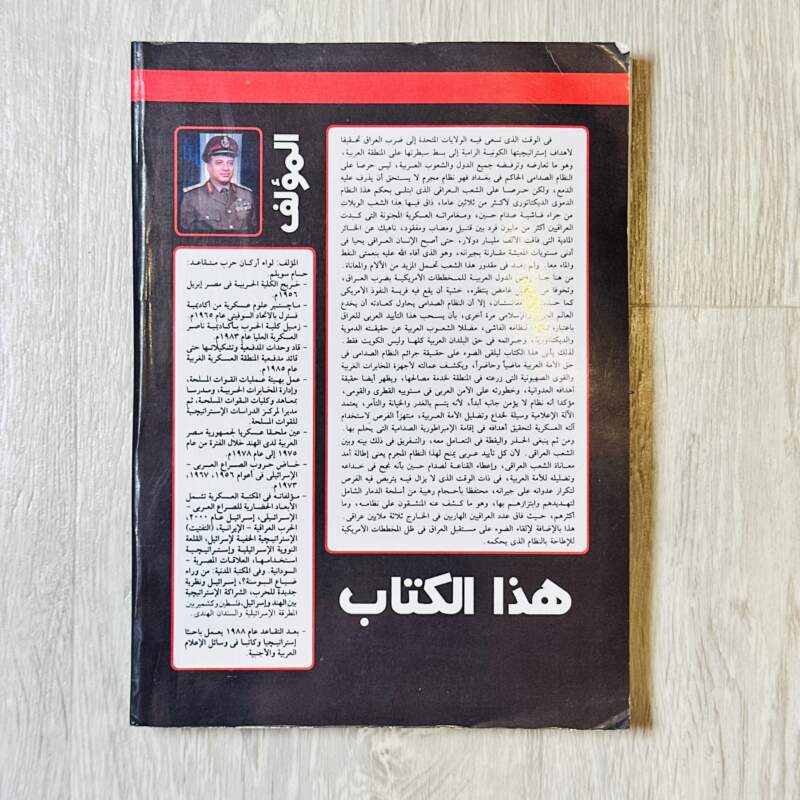 فى الوقت الذى تسعى فيه الولايات المتحدة إلى ضرب العراق تحقيقا
لأهداف إستراتيجيتها الكونية الرامية إلى بسط سيطرتها على المنطقة العربية،
وهو ما تعارضه وترفضه جميع الدول والشعوب العربية، ليس حرصا على
النظام الصدامى الحاكم فى بغداد فهو نظام مجرم لا يستحق أن يذرف عليه
الدمع، ولكن حرصا على الشعب العراقى الذى ابتلى بحكم هذا النظام
الدموى الديكتاتورى لأكثر من ثلاثين عاما، ذاق فيها هذا الشعب الويلات
من جراء فاشية صدام حسين، ومغامراته العسكرية المجنونة التى كبدت
العراقيين أكثر من مليون فرد بين قتيل ومصاب ومفقود، ناهيك عن الخسائر
المادية التى فاقت الألف مليار دولار، حتى أصبح الإنسان العراقى يحيا فى
أدنى مستويات المعيشة مقارنة بجيرانه، وهو الذى أفاء الله عليه بنعمتى النفط
والماء معا. ولم يعد فى مقدور هذا الشعب تحمل المزيد من الآلام والمعاناة.
من هنا الدول العربية للمخططات الأمريكية بضرب العراق،
وتخوفا غامض ينتظره، خشية أن يقع فرية النفوذ الأمريكى
كما أفغانستان، إلا أن النظام الصدامى يحاول كعادته أن يخدع
العالم والإسلامى مرة أخرى، بأن يسحب هذا التأييد العربى للعراق
باعتباره نظامه الفاشى، مضللا الشعوب العربية عن حقيقته الدموية
والديكتاتورية، وجرائمه فى حق البلدان العربية كلها وليس الكويت فقط.
لذلك يأتى هذا الكتاب ليلقى الضوء على حقيقة جرائم النظام الصدامى فى
حق الأمة العربية ماضيا وحاضرا، ويكشف عمالته لأجهزة المخابرات الغربية
والقوى الصهيونية التى زرعته فى المنطقة لخدمة مصالحها، ويظهر أيضا حقيقة
أهدافه العدوانية، وخطورته على الأمن العربى فى مستوييه القطرى والقومى،
مؤكدا أنه نظام لا يؤمن جانبه أبداً، لأنه يتسم بالغدر والخيانة والتآمر، يعتمد
الآلة الإعلامية وسيلة لخداع وتضليل الأمة العربية، منتهزاً الفرص لاستخدام
آلته العسكرية لتحقيق أهدافه فى إقامة الإمبراطورية الصدامية التى يحلم بها.
ومن ثم ينبغى الحذر واليقظة فى التعامل معه، والتفريق فى ذلك بينه وبين
الشعب العراقى. لأن كل تأييد عربى يمنح لهذا النظام المجرم يعنى إطالة أمد
معاناة الشعب العراقى، وإعطاء القناعة لصدام حسين بأنه نجح فى خداعه
وتضليله للأمة العربية، فى ذات الوقت الذى لا يزال فيه يتربص فيه الفرص
لتكرار عدوانه على جيرانه، محتفظا بأحجام رهيبة من أسلحة الدمار الشامل
لتهديدهم وابتزازهم بها، وهو ما كشف عنه المنشقون على نظامه، وما
أكثرهم، حيث فاق عدد العراقيين الهاربين فى الخارج ثلاثة ملايين عراقى.
هذا بالإضافة لإلقاء الضوء على مستقبل العراق فى ظل المخططات الأمريكية
للإطاحة بالنظام الذى يحكمه.
هذا الكتاب
المؤلف
المؤلف: لواء أركان حرب متقاعد:
حسام سويلم.
- خريج الكلية الحربية فى مصر إبريل
١٩٥٦م.
- ماجستير علوم عسكرية من أكاديمية
فسترل بالاتحاد السوفيتى عام ١٩٦٥م.
- زميل كلية الحرب بأكاديمية ناصر
العسكرية العليا عام ١٩٨٣م.
- قاد وحدات المدفعية وتشكيلاتها حتى
قائد مدفعية المنطقة العسكرية الغربية
عام ١٩٨٥م.
- عمل بهيئة عمليات القوات المسلحة،
وإدارة المخابرات الحربية، ومدرسا
بمعاهد وكليات القوات المسلحة، ثم
مديرا لمركز الدراسات الإستراتيجية
للقوات المسلحة.
- عين ملحقا عسكريا لجمهورية مصر
العربية لدى الهند خلال الفترة من عام
١٩٧٥ إلى عام ١٩٧٨م.
- خاض حروب الصراع العربى -
الإسرائيلى فى أعوام ١٩٥٦، ١٩٦٧،
١٩٧٣م.
- مؤلفاته فى المكتبة العسكرية تشمل
الأبعاد الحضارية للصراع العربى -
الإسرائيلى، إسرائيل عام ٢٠٠٠،
الحرب العراقية - الإيرانية، (التفتيت)
الإستراتيجية الخفية لإسرائيل، القلعة
النووية الإسرائيلية وإستراتيجية
استخدامها، العلاقات المصرية -
السودانية. وفى المكتبة المدنية: من وراء
ضياع البوسنة؟، إسرائيل ونظرية
جديدة للحرب، الشراكة الإستراتيجية
بين الهند وإسرائيل، فلسطين وكشمير بين
المطرقة الإسرائيلية والسندان الهندى.
- بعد التقاعد عام ١٩٨٨ يعمل باحثا
إستراتيجيا وكاتبا فى وسائل الإعلام
العربية والأجنبية.